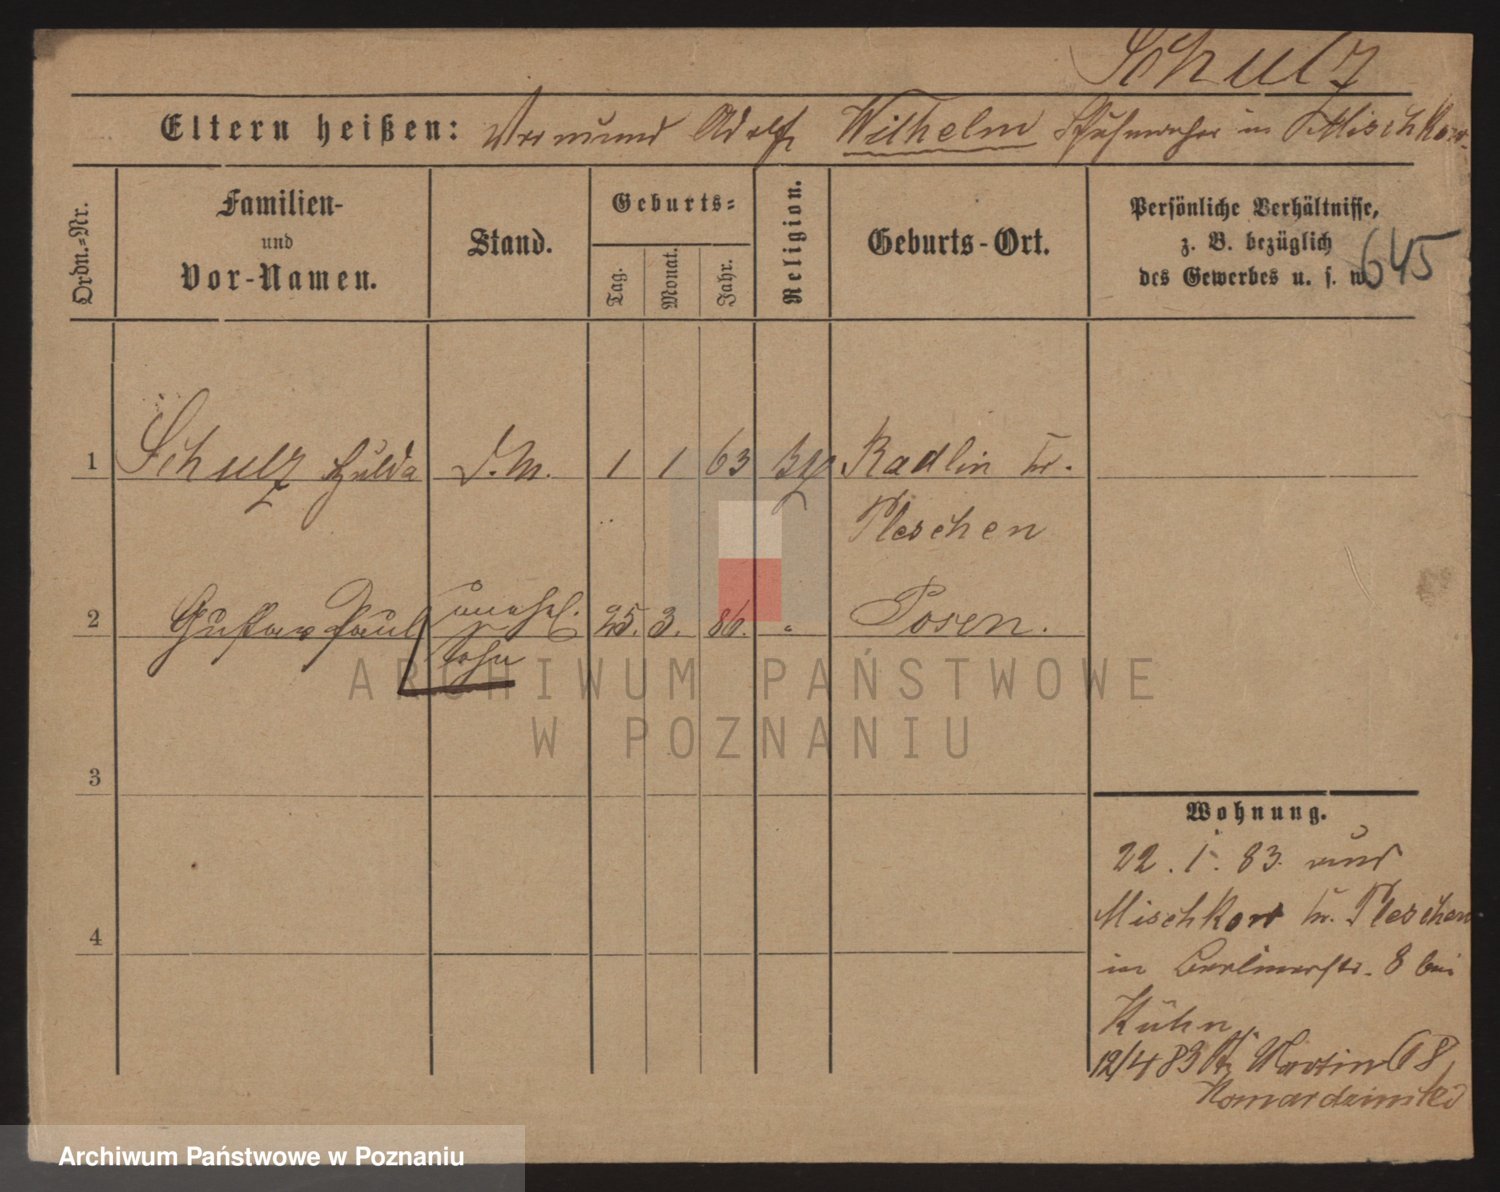 Schulz
Eltern heißen: Vormund Adolf Wilhelm in Mischkow
Ordn.=Nr.
Familien-
und
Vor-Namen.
Stand.
Geburts=
Tag.
Monat.
Jahr.
Religion.
Geburts-Ort.
Persönliche Verhältnisse,
z. B. bezüglich
des Gewerbes u. s. w.
645
1 Schulz Hulda D.M. 1 1 63 Radlin Kr.
Pleschen
2 Gustav Paul unehel. 25. 3. 86. " Posen.
Sohn
3
4
Wohnung.
22. 1. 83. aus
Mischkow Kr. Pleschen
in Berlinerstr. 8 bei
Kühn.
12/4 83 St Martin 68
ARCHIWUM PAŃSTWOWE
W POZNANIU
Archiwum Państwowe w Poznaniu